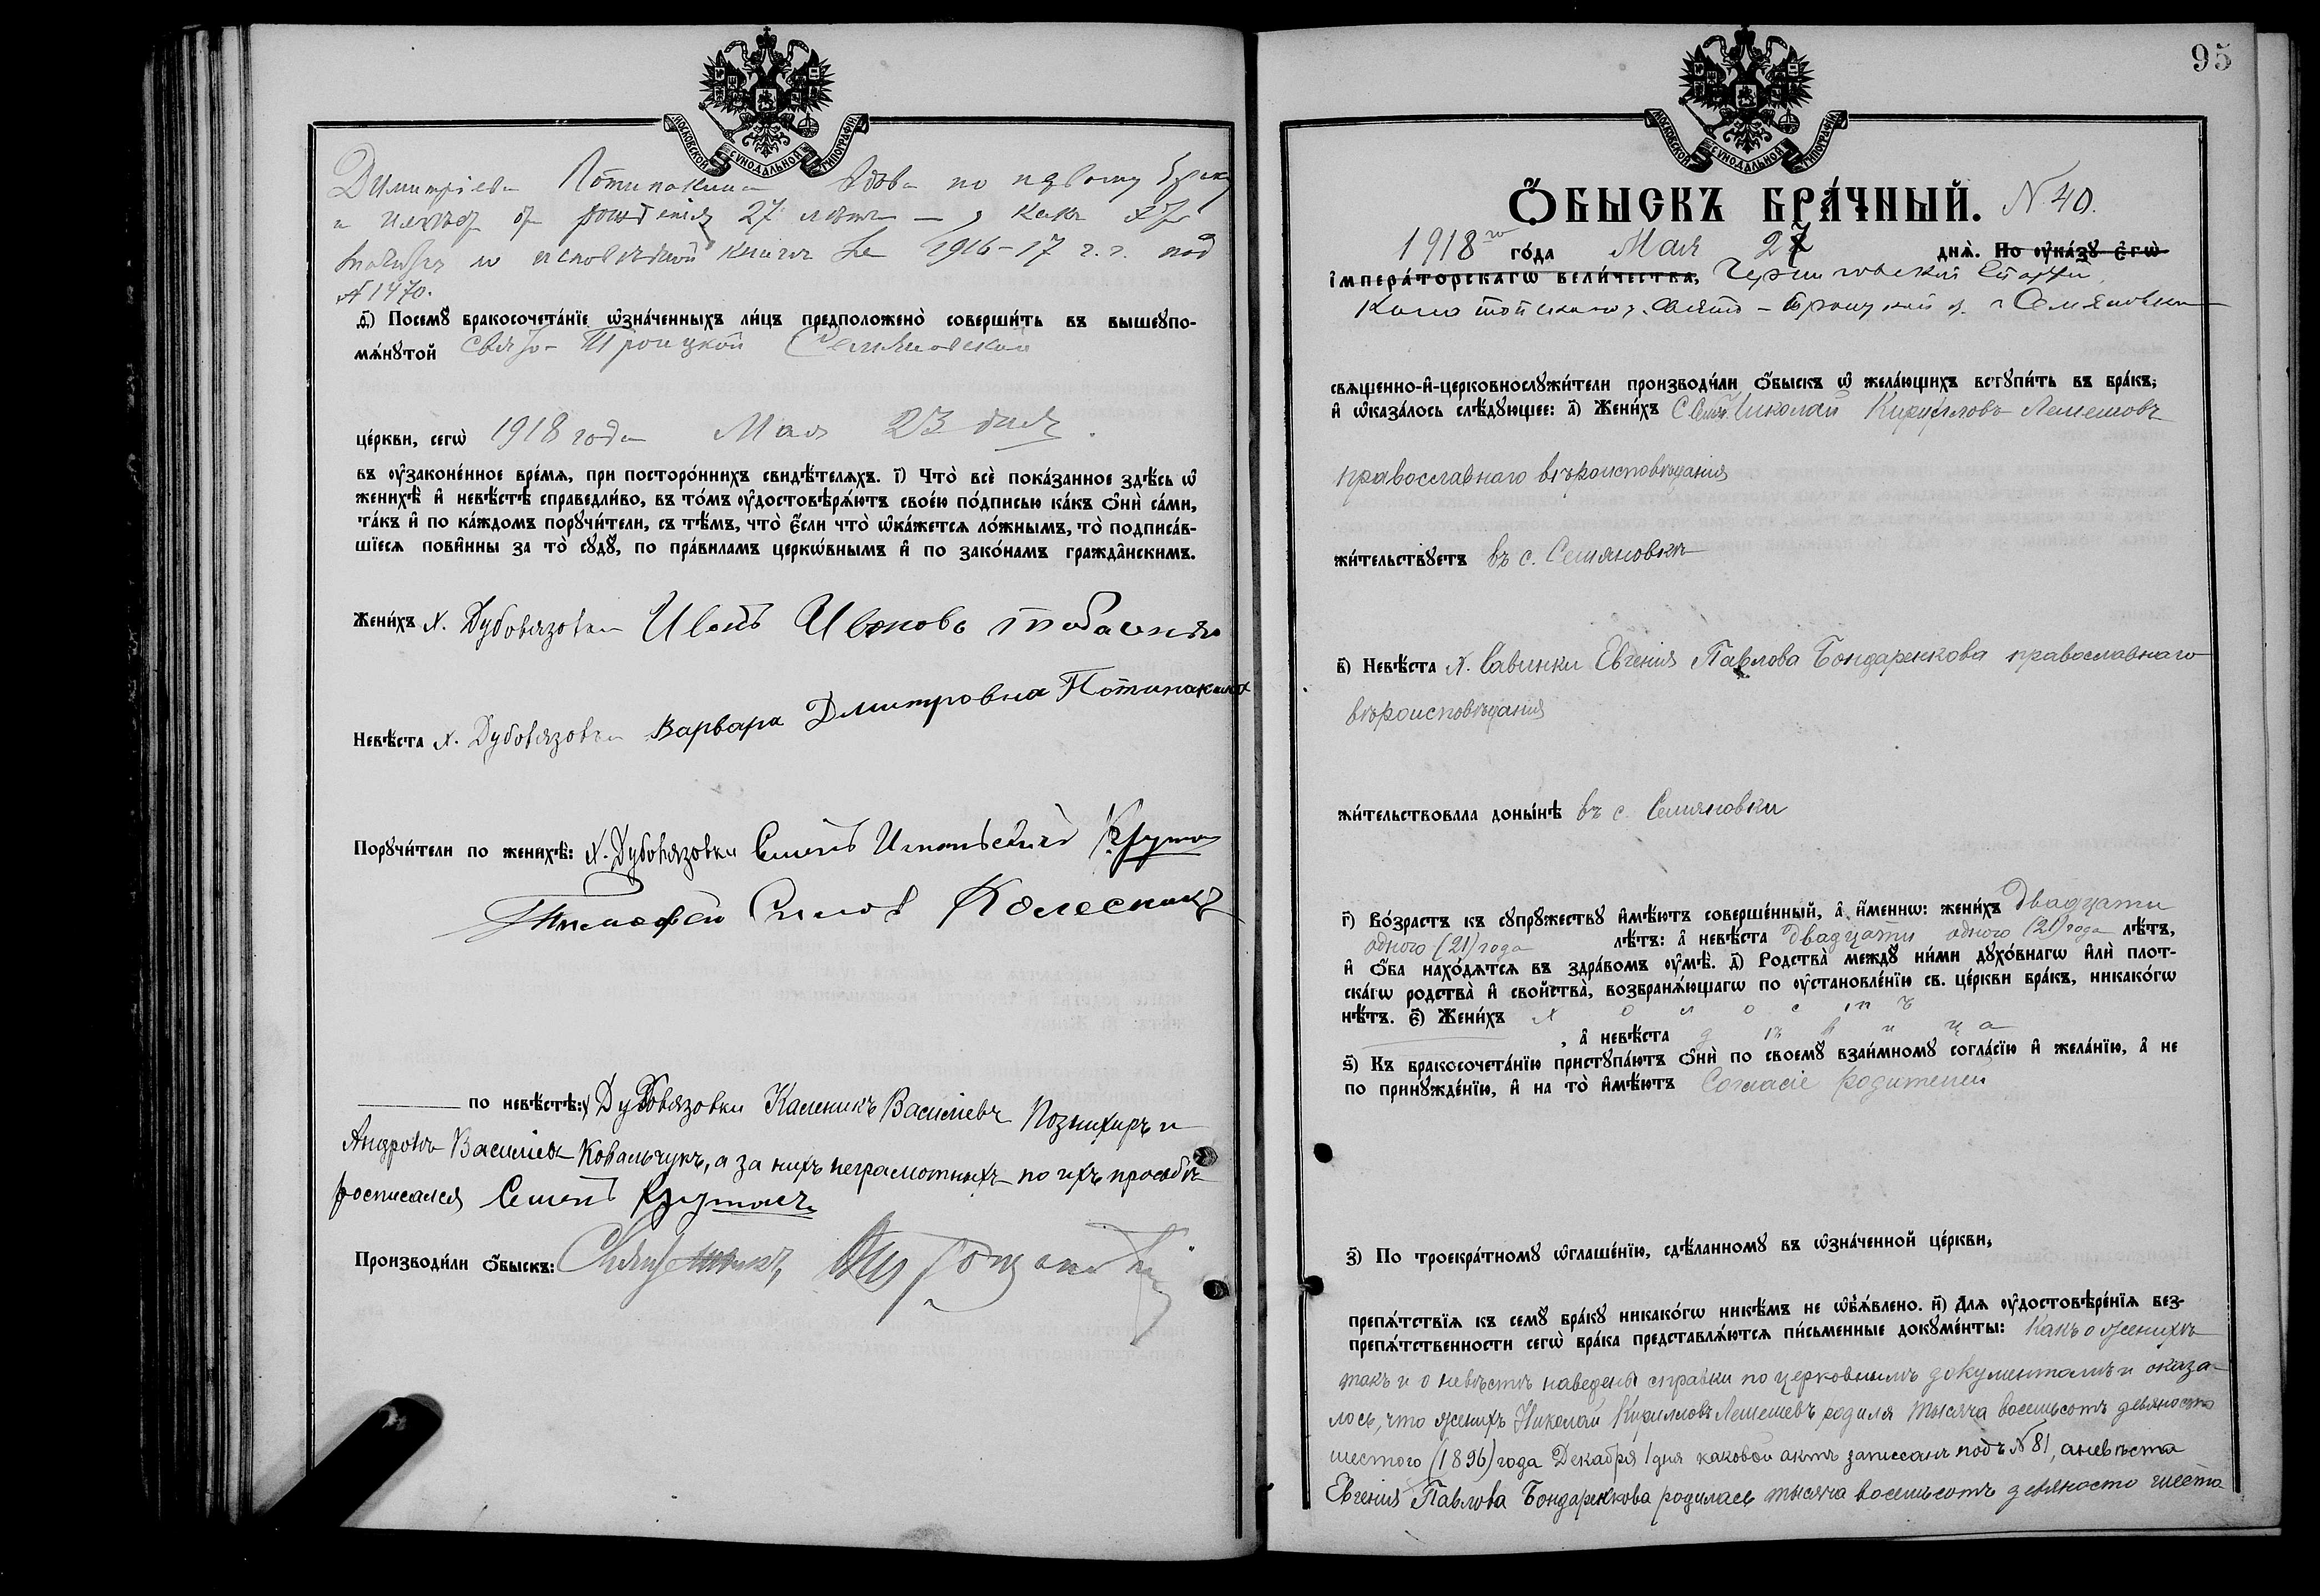 МОСКОВСКОЙ СѴНОДАЛЬНОЙ ТИПОГРАФІИ
Димитріева Потипакина вдова по первому браку
и имѣетъ отъ рожденія 27 лѣтъ
въ исповѣдной книгѣ за 1916-17 г.г. под
№ 1470.
д҃) Посемꙋ бракосочета́нїе ѡ҆зна́ченныхъ ли́цъ предположено̀ соверши́ть въ вышеꙋпо-
мѧ́нꙋтой Свято-Троицкой Семяновской
це́ркви, сегѡ̀ 1918 года Мая 23 дня.
въ ᲂу҆законе́нное вре́мѧ, при посторо́ннихъ свидѣ́телѧхъ. і҃) Что̀ всѐ пока́занное здѣ́сь ѡ҆
женихѣ̀ и҆ невѣ́стѣ справедли́во, въ то́мъ ᲂу҆достовѣрѧ́ютъ свое́ю по́дписью ка́къ ѻ҆нѝ са́ми,
та́къ и҆ по ка́ждомъ порꙋчи́тели, съ тѣ́мъ, что̀ є҆́сли что̀ ѡ҆ка́жетсѧ ло́жнымъ, то̀ подписа́в-
шїесѧ пови́нны за то̀ сꙋдꙋ̀, по пра́виламъ церкѡ́внымъ и҆ по зако́намъ гражда́нскимъ.
Жени́хъ х. Дубовязовки Иванъ Ивановъ
Невѣ́ста х. Дубовязовки Варвара Дмитровна Потипакина
Порꙋчи́тели по женихѣ̀: х. Дубовязовки Семенъ
Тимофей Колесникъ
по невѣ́стѣ: х. Дубовязовки Каленикъ Василіевъ Познихиръ и
Андронъ Василіевъ Ковальчукъ, а за нихъ неграмотныхъ по ихъ просьбѣ
росписался Семенъ
Производи́ли ѻ҆́быскъ: Священникъ
95
МОСКОВСКОЙ СѴНОДАЛЬНОЙ ТИПОГРАФІИ
Ѻ҆́БЫСКЪ БРА́ЧНЫЙ. N. 40.
1918го го́да Мая 27 днѧ̀. По ᲂу҆ка́зꙋ є҆гѡ̀
і҆мпера́торскагѡ вели́чества, Черниговской Епархіи
Конотопскаго у. Свято-Троицкой ц. с. Семяновки
свѧщенно-и҆-церковнослꙋжи́тели производи́ли ѻ҆́быскъ ѡ҆ жела́ющихъ встꙋпи́ть въ бра́къ,
и҆ ѡ҆каза́лось слѣ́дꙋющее: а҃) Жени́хъ Николай Кирилловъ Лемешовъ
православнаго вѣроисповѣданія
жи́тельствꙋетъ въ с. Семяновкѣ
в҃) Невѣ́ста х. Савинки Евгенія Павлова Бондаренкова православнаго
вѣроисповѣданія
жи́тельствовала доны́нѣ въ с. Семяновки
г҃) Во́зрастъ къ сꙋпрꙋ́жествꙋ и҆мѣ́ютъ соверше́нный, а҆ и҆́меннѡ: жени́хъ двадцати
одного (21) года лѣ́тъ: а҆ невѣ́ста двадцати одного (21) года лѣ́тъ,
и҆ ѻ҆́ба нахо́дѧтсѧ въ здра́вомъ ᲂу҆мѣ̀. д҃) Родства̀ междꙋ̀ ни́ми дꙋхо́внагѡ и҆лѝ плот-
ска́гѡ родства̀ и҆ свойства̀, возбранѧ́ющагѡ по ᲂу҆становле́нїю св. це́ркви бра́къ, никако́гѡ
нѣ́тъ. є҃) Жени́хъ холостъ
, а҆ невѣ́ста дѣвица
ѕ҃) Къ бракосочета́нїю пристꙋпа́ютъ ѻ҆нѝ по своемꙋ̀ взаи́мномꙋ согла́сїю и҆ жела́нїю, а҆ не
по принꙋжде́нїю, и҆ на то̀ и҆мѣ́ютъ Согласіе родителей
з҃) По троекра́тномꙋ ѡ҆глаше́нїю, сдѣ́ланномꙋ въ ѡ҆зна́ченной це́ркви,
препѧ́тствїѧ къ семꙋ̀ бра́кꙋ никако́гѡ никѣ́мъ не ѡ҆б̾ѧ́влено. и҃) Длѧ ᲂу҆достовѣре́нїѧ без-
препѧ́тственности сегѡ̀ бра́ка представлѧ́ютсѧ пи́сьменные докꙋме́нты: Какъ о женихѣ
такъ и о невѣстѣ наведены справки по церковнымъ документамъ и оказа-
лось, что женихъ Николай Кирилловъ Лемешевъ родился тысяча восемьсотъ девяносто
шестого (1896) года Декабря 1 дня каковой актъ записанъ подъ № 81, а невѣста
Евгенія Павлова Бондаренкова родилась тысяча восемьсотъ девяносто шесто